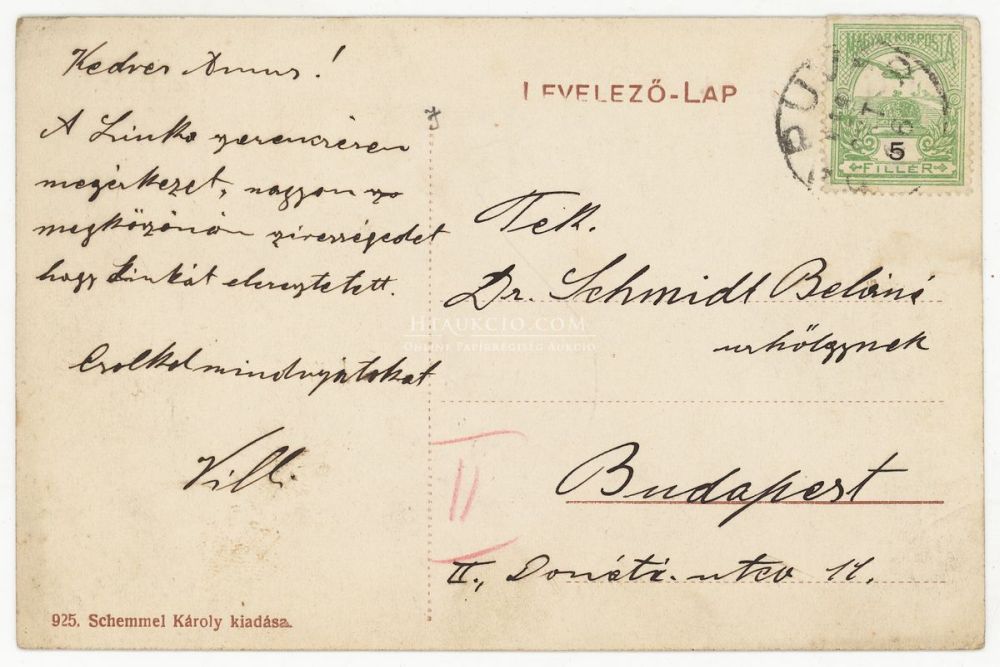 Kedves Annus!
A Linka szerencsésen
megérkezet, nagyon
megköszönöm szivességedet
hogy Linkát eleresztetett.
Csolkol mindnyájatokat
Villi
LEVELEZŐ-LAP
MAGYAR KIR. POSTA
5
FILLÉR
Tek.
Dr. Schmidt Beláné
urhölgynek
Budapest
II., Donáti-utca 11.
II
HTAUKCIO.COM
ONLINE PAPÍRRÉGISÉG AUKCIÓ
925. Schemmel Károly kiadása.